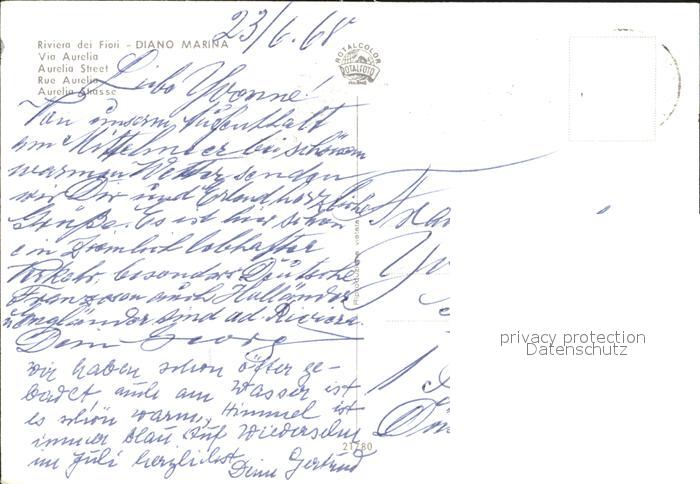 23/6.68
Riviera dei Fiori - DIANO MARINA
Via Aurelia
Aurelia Street
Rue Aurelia
Aurelia Strasse
ROTALCOLOR
ROTALFOTO
Liebe Yvonne!
Von unserm Aufenthalt
am Mittelmeer bei schönem
warmen Wetter senden
wir Dir und Erland herzliche
Grüße. Es ist hier schon
ein ziemlich lebhafter
Verkehr, besonders Deutsche
Franzosen auch Holländer
u. Engländer sind a d. Riviera.
Dein Georg
wir haben schon öfter ge-
badet, auch am Wasser ist
es schön warm, Himmel ist
immer blau. Auf Wiedersehn
im Juli herzlichst Deine Gertrud
Riproduzione vietata
21780
Frau
Yv
1
privacy protection
Datenschutz